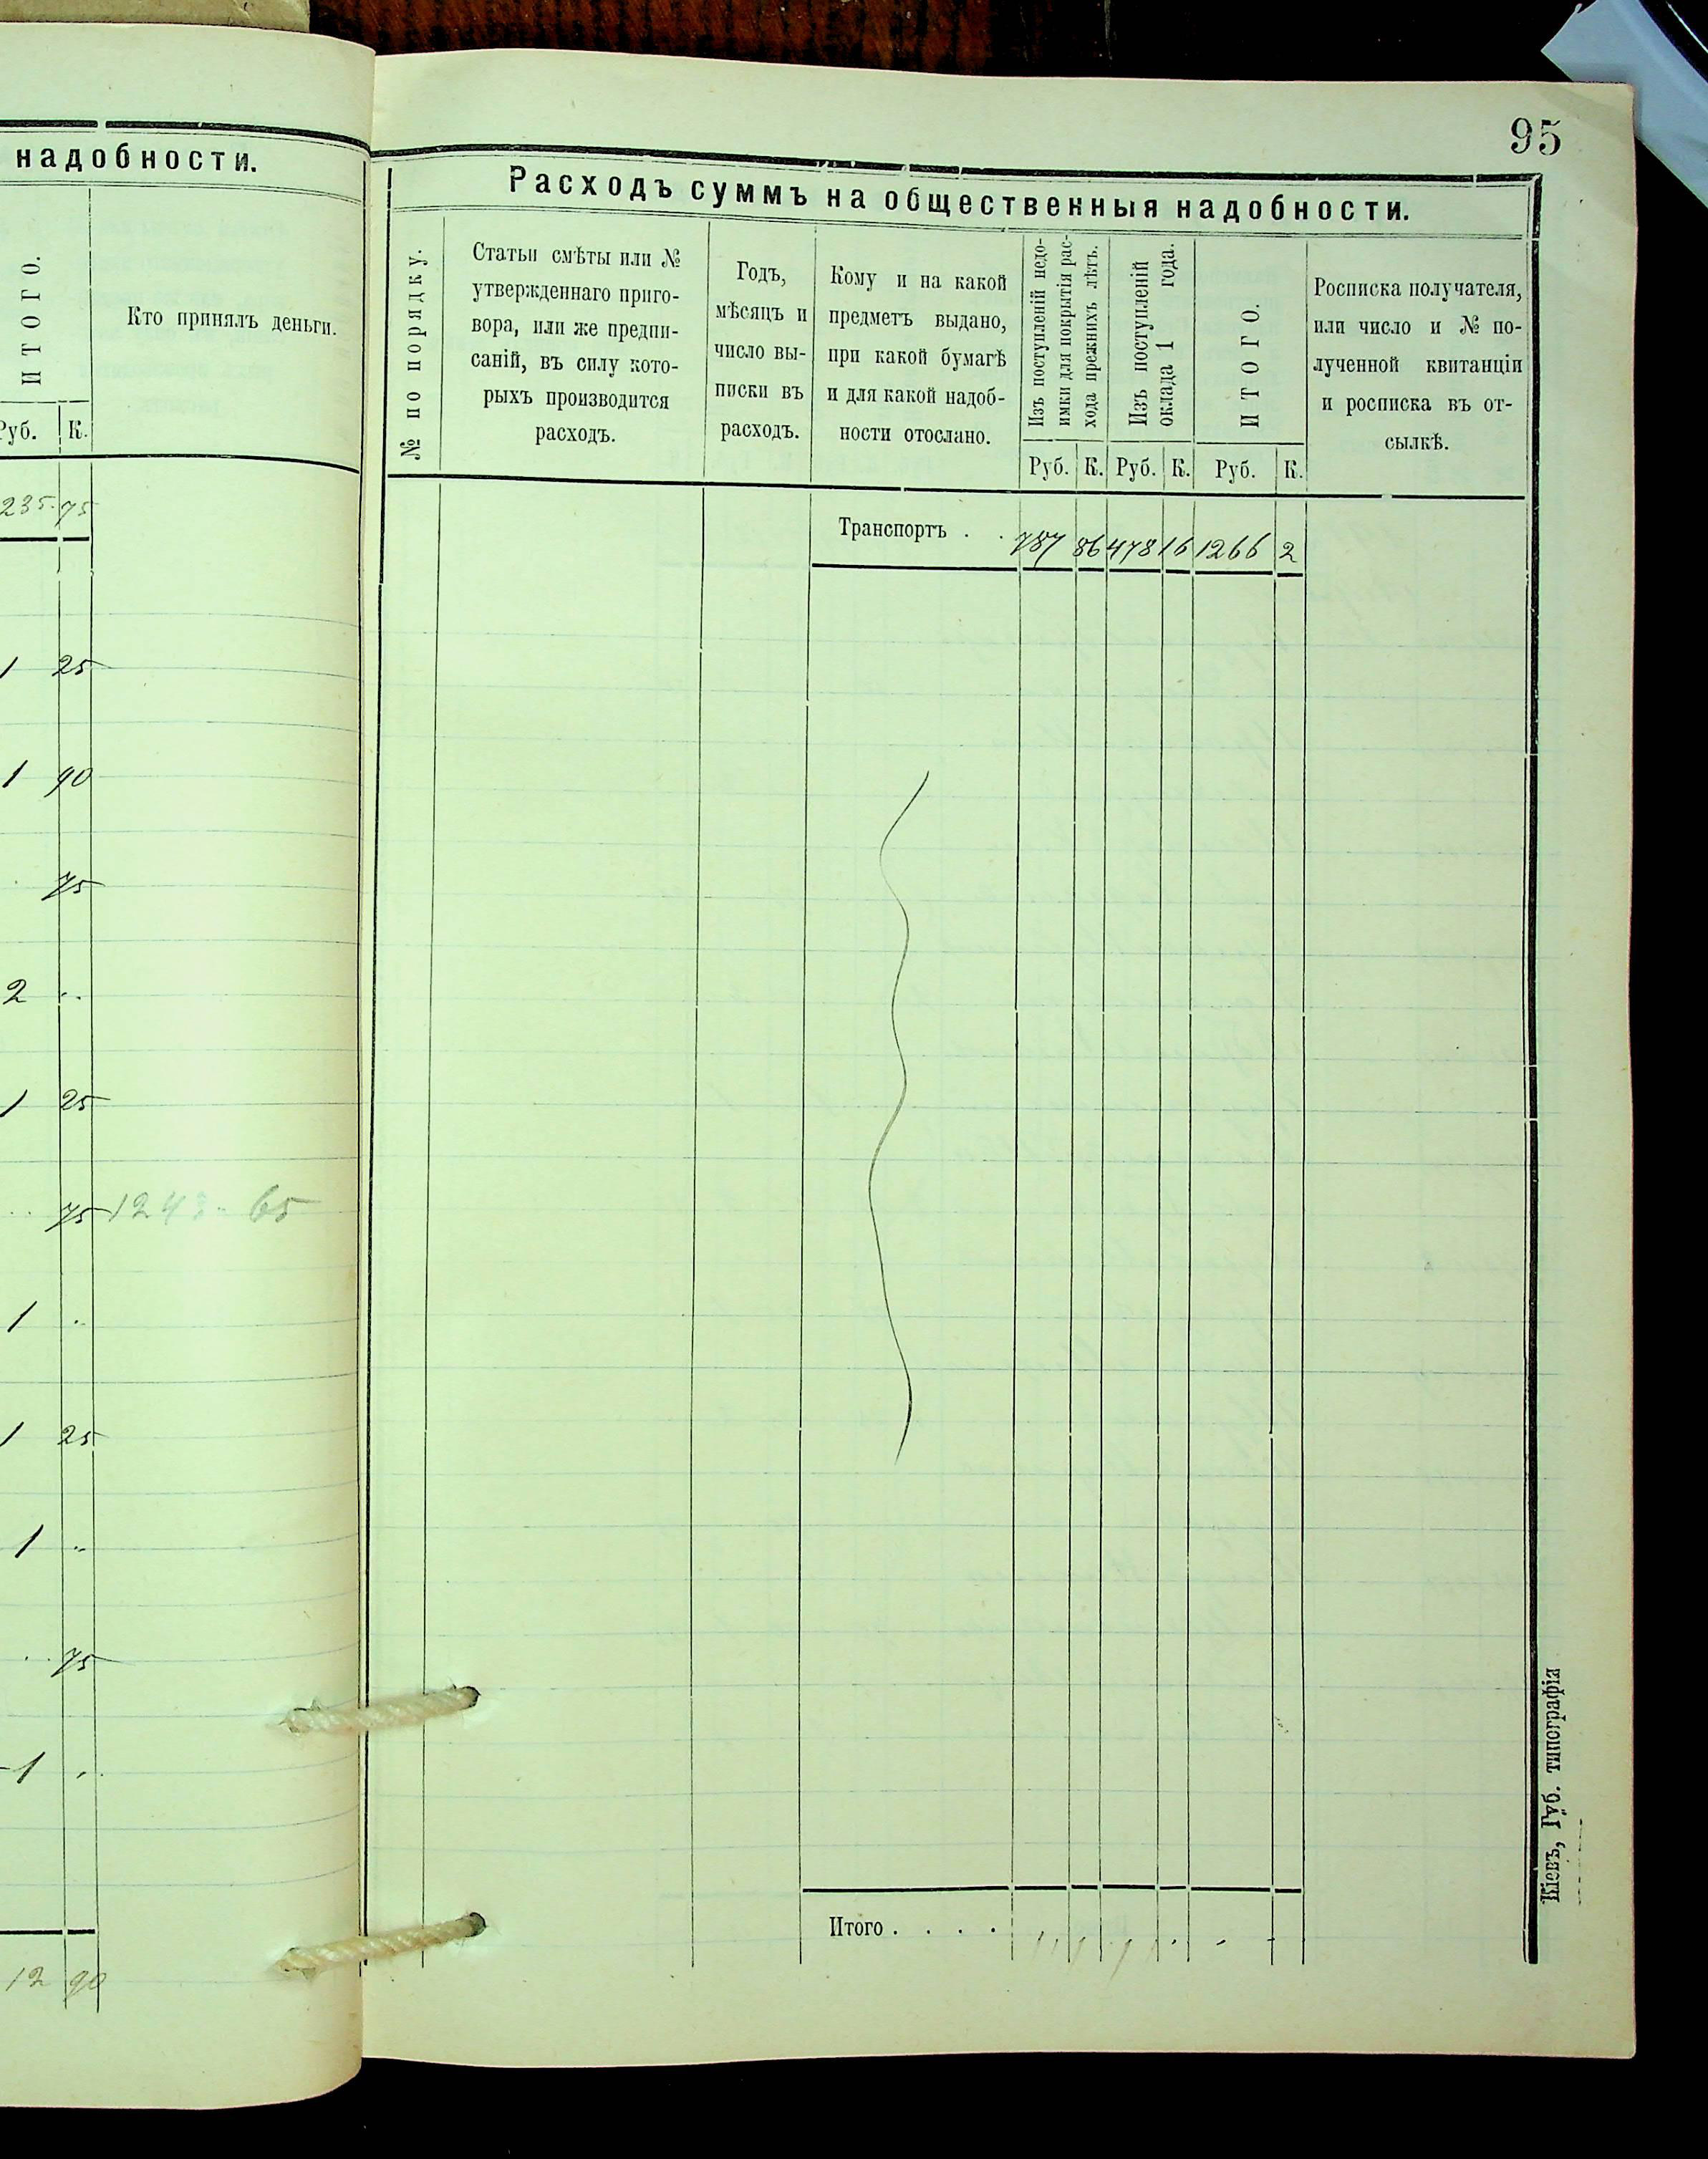 надобности.
ИТОГО.
Кто принялъ деньги.
Руб. К.
235. 75
1 25
1 90
75
2 ..
1 25
.. 75 1243.. 65
1 ..
1 25
1 ..
.. 75
1 ..
12 90
95
Расходъ суммъ на общественныя надобности.
№ по порядку.
Статьи смѣты или №
утвержденнаго приго-
вора, или же предпи-
саній, въ силу кото-
рыхъ производится
расходъ.
Годъ,
мѣсяцъ и
число вы-
писки въ
расходъ.
Кому и на какой
предметъ выдано,
при какой бумагѣ
и для какой надоб-
ности отослано.
Изъ поступленій недо-
имки для покрытія рас-
хода прежнихъ лѣтъ.
Изъ поступленій
оклада 1 года.
ИТОГО.
Росписка получателя,
или число и № по-
лученной квитанціи
и росписка въ от-
сылкѣ.
Руб. К. Руб. К. Руб. К.
Транспортъ . . 787 86 478 16 1266 2
Итого . . . .
Кіевъ, Губ. типографія